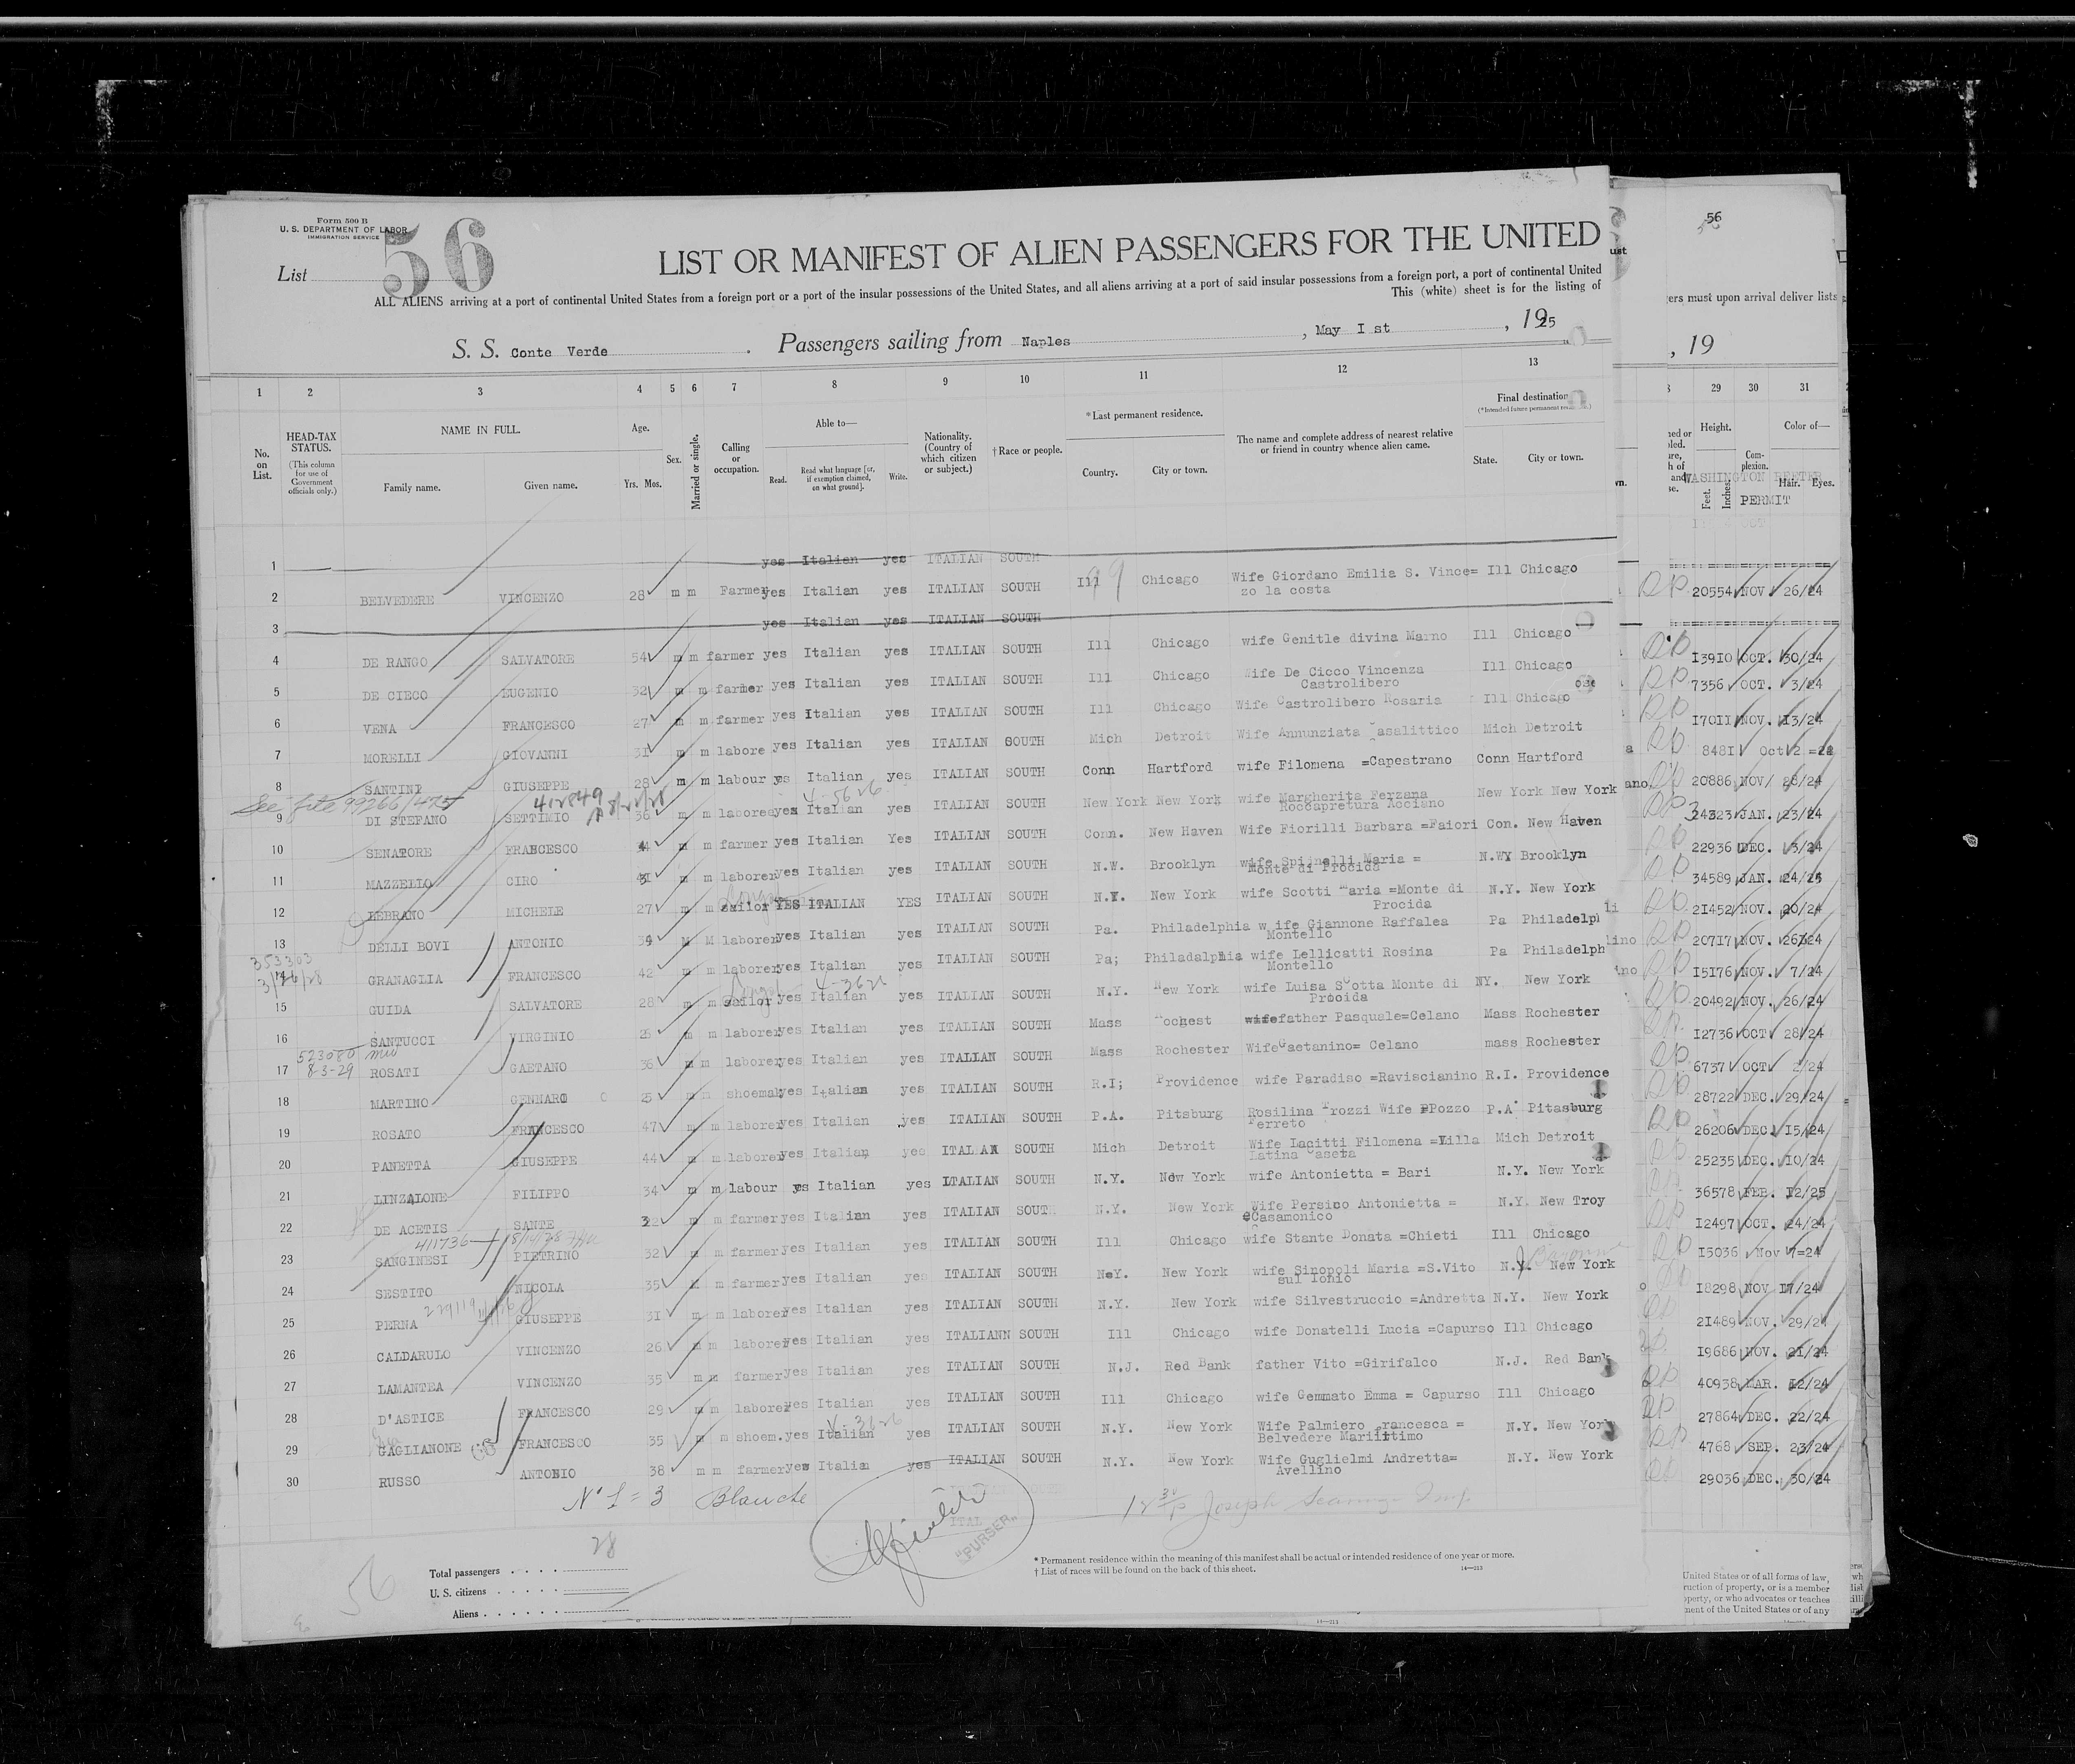 Form 500 B
U. S. DEPARTMENT OF LABOR
IMMIGRATION SERVICE
List 56
LIST OR MANIFEST OF ALIEN PASSENGERS FOR THE UNITED
ALL ALIENS arriving at a port of continental United States from a foreign port or a port of the insular possessions of the United States, and all aliens arriving at a port of said insular possessions from a foreign port, a port of continental United
This (white) sheet is for the listing of
S. S. Conte Verde . Passengers sailing from Naples , May I st , 1925
56
gers must upon arrival deliver lists
, 19
1 2 3 4 5 6 7 8 9 10 11 12 13 29 30 31
No. on List.
HEAD-TAX STATUS.
(This column for use of Government officials only.)
NAME IN FULL.
Family name. Given name.
Age.
Yrs. Mos.
Sex.
Married or single.
Calling or occupation.
Able to—
Read. Read what language [or, if exemption claimed, on what ground]. Write.
Nationality. (Country of which citizen or subject.)
†Race or people.
*Last permanent residence.
Country. City or town.
The name and complete address of nearest relative or friend in country whence alien came.
Final destination
State. City or town.
Height.
Feet. Inches.
Com-plexion.
Color of—
Hair. Eyes.
WASHINGTON
PERMIT
1 yes Italian yes ITALIAN SOUTH
2 BELVEDERE VINCENZO 28 m m Farmer yes Italian yes ITALIAN SOUTH Ill Chicago Wife Giordano Emilia S. Vince= Ill Chicago 20554 NOV. 26/24
zo la costa
3 yes Italian yes ITALIAN SOUTH
4 DE RANGO SALVATORE 54 m m farmer yes Italian yes ITALIAN SOUTH Ill Chicago wife Genitle divina Marno Ill Chicago I39I0 OCT. 30/24
5 DE CIECO EUGENIO 32 m m farmer yes Italian yes ITALIAN SOUTH Ill Chicago Wife De Cicco Vincenza Ill Chicago 7356 OCT. 3/24
Castrolibero
6 VENA FRANCESCO 27 m m farmer yes Italian yes ITALIAN SOUTH Ill Chicago Wife Castrolibero Rosaria Ill Chicago I70II NOV. I3/24
7 MORELLI GIOVANNI 3I m m labore yes Italian yes ITALIAN SOUTH Mich Detroit Wife Annunziata Casalittico Mich Detroit 848I Oct 2 =24
8 SANTINI GIUSEPPE 28 m m labour yes Italian yes ITALIAN SOUTH Conn Hartford wife Filomena =Capestrano Conn Hartford 20886 NOV/ 28/24
See file 99266/475 412849
9 DI STEFANO SETTIMIO 36 m m laborer yes Italian yes ITALIAN SOUTH New York New York wife Margherita Ferzana New York New York 24323 JAN. 23/24
Roccapretura Acciano
10 SENATORE FRANCESCO 44 m m farmer yes Italian Yes ITALIAN SOUTH Conn. New Haven Wife Fiorilli Barbara =Faiori Con. New Haven 22936 DEC. 3/24
11 MAZZELLO CIRO m m laborer yes Italian yes ITALIAN SOUTH N.W. Brooklyn wife Spinelli Maria = N.WY Brooklyn 34589 JAN. 24/25
Monte di Procida
12 LEBRANO MICHELE 27 m m sailor YES ITALIAN YES ITALIAN SOUTH N.Y. New York wife Scotti Maria =Monte di N.Y. New York 2I452 NOV. 20/24
Procida
13 DELLI BOVI ANTONIO 34 M M laborer yes Italian yes ITALIAN SOUTH Pa. Philadelphia w ife Giannone Raffalea Pa Philadelph 207I7 NOV. 26/24
Montello
353303
3/26/28
GRANAGLIA FRANCESCO 42 m m laborer yes Italian yes ITALIAN SOUTH Pa; Philadalphia wife Lellicatti Rosina Pa Philadelph I5I76 NOV. 7/24
Montello
15 GUIDA SALVATORE 28 m m sailor yes Italian yes ITALIAN SOUTH N.Y. New York wife Luisa Scotta Monte di NY. New York 20492 NOV. 26/24
Procida
16 SANTUCCI VIRGINIO 25 m m laborer yes Italian yes ITALIAN SOUTH Mass Rochest wifefather Pasquale=Celano Mass Rochester I2736 OCT 28/24
523080
8-3-29
17 ROSATI GAETANO 36 m m laborer yes Italian yes ITALIAN SOUTH Mass Rochester WifeGaetanino= Celano mass Rochester 6737 OCT 2/24
18 MARTINO GENNARO 25 m m shoemak yes Italian yes ITALIAN SOUTH R.I; Providence wife Paradiso =Raviscianino R.I. Providence 28722 DEC. 29/24
19 ROSATO FRANCESCO 47 m m laborer yes Italian yes ITALIAN SOUTH P.A. Pitsburg Rosilina Trozzi Wife PPozzo P.A Pitasburg 26206 DEC. I5/24
Ferreto
20 PANETTA GIUSEPPE 44 m m laborer yes Italian yes ITALIAN SOUTH Mich Detroit Wife Lacitti Filomena =Villa Mich Detroit 25235 DEC. I0/24
Latina Caseta
21 LINZALONE FILIPPO 34 m m labour yes Italian yes ITALIAN SOUTH N.Y. New York wife Antonietta = Bari N.Y. New York 36578 FEB. I2/25
22 DE ACETIS SANTE 32 m m farmer yes Italian yes ITALIAN SOUTH N.Y. New York Wife Persico Antonietta = N.Y. New Troy I2497 OCT. 24/24
Casamonico
411736
23 SANGINESI PIETRINO 32 m m farmer yes Italian yes ITALIAN SOUTH Ill Chicago wife Stante Donata =Chieti Ill Chicago I5036 Nov 7=24
24 SESTITO NICOLA 35 m m farmer yes Italian yes ITALIAN SOUTH N.Y. New York wife Sinopoli Maria =S.Vito N.Y. New York I8298 NOV I7/24
sul Ionio
229119
25 PERNA GIUSEPPE 3I m m laborer yes Italian yes ITALIAN SOUTH N.Y. New York wife Silvestruccio =Andretta N.Y. New York 2I489 NOV. 29/24
26 CALDARULO VINCENZO 26 m m laborer yes Italian yes ITALIANN SOUTH Ill Chicago wife Donatelli Lucia =Capurso Ill Chicago I9686 NOV. 2I/24
27 LAMANTEA VINCENZO 35 m m farmer yes Italian yes ITALIAN SOUTH N.J. Red Bank father Vito =Girifalco N.J. Red Bank 40938 MAR. I2/24
28 D'ASTICE FRANCESCO 29 m m laborer yes Italian yes ITALIAN SOUTH Ill Chicago wife Gemmato Emma = Capurso Ill Chicago 27864 DEC. 22/24
29 GAGLIANONE FRANCESCO 35 m m shoem. yes Italian yes ITALIAN SOUTH N.Y. New York Wife Palmiero Francesca = N.Y. New York 4768 SEP. 23/24
Belvedere Mariittimo
30 RUSSO ANTONIO 38 m m farmer yes Italia yes ITALIAN SOUTH N.Y. New York Wife Guglielmi Andretta= N.Y. New York 29036 DEC. 30/24
Avellino
No 1 = 3 Blanche
"PURSER"
28
56
Total passengers
U. S. citizens
Aliens
* Permanent residence within the meaning of this manifest shall be actual or intended residence of one year or more.
† List of races will be found on the back of this sheet.
United States or of all forms of law,
ruction of property, or is a member
operty, or who advocates or teaches
ment of the United States or of any